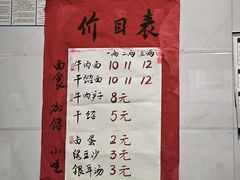 价目表
一两 二两 三两
面食
牛肉面 10 11 12
干馏面 10 11 12
加馏
牛肉 8元
干馏 5元
小吃
卤蛋 2元
绿豆沙 3元
银耳汤 3元